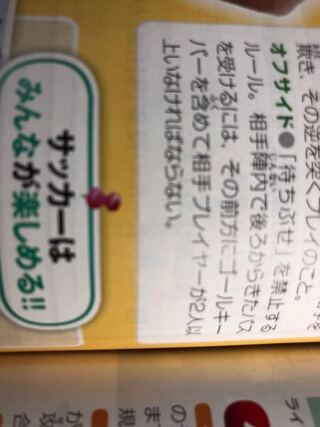 欺き、その逆を突くプレイのこと。
オフサイド●「待ちぶせ」を禁止する
ルール。相手陣内で後ろからきたパス
を受けるには、その前方にゴールキー
パーを含めて相手プレイヤーが2人以
上いなければならない。
サッカーは
みんなが楽しめる!!
ライ
の
ます
規
が
攻
合